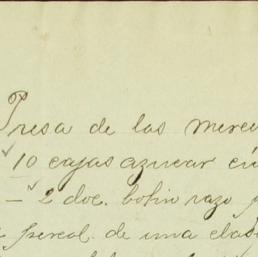 Presa de las merc
10 cajas azucar
– 2 doc. botin razo
percal. de una clas